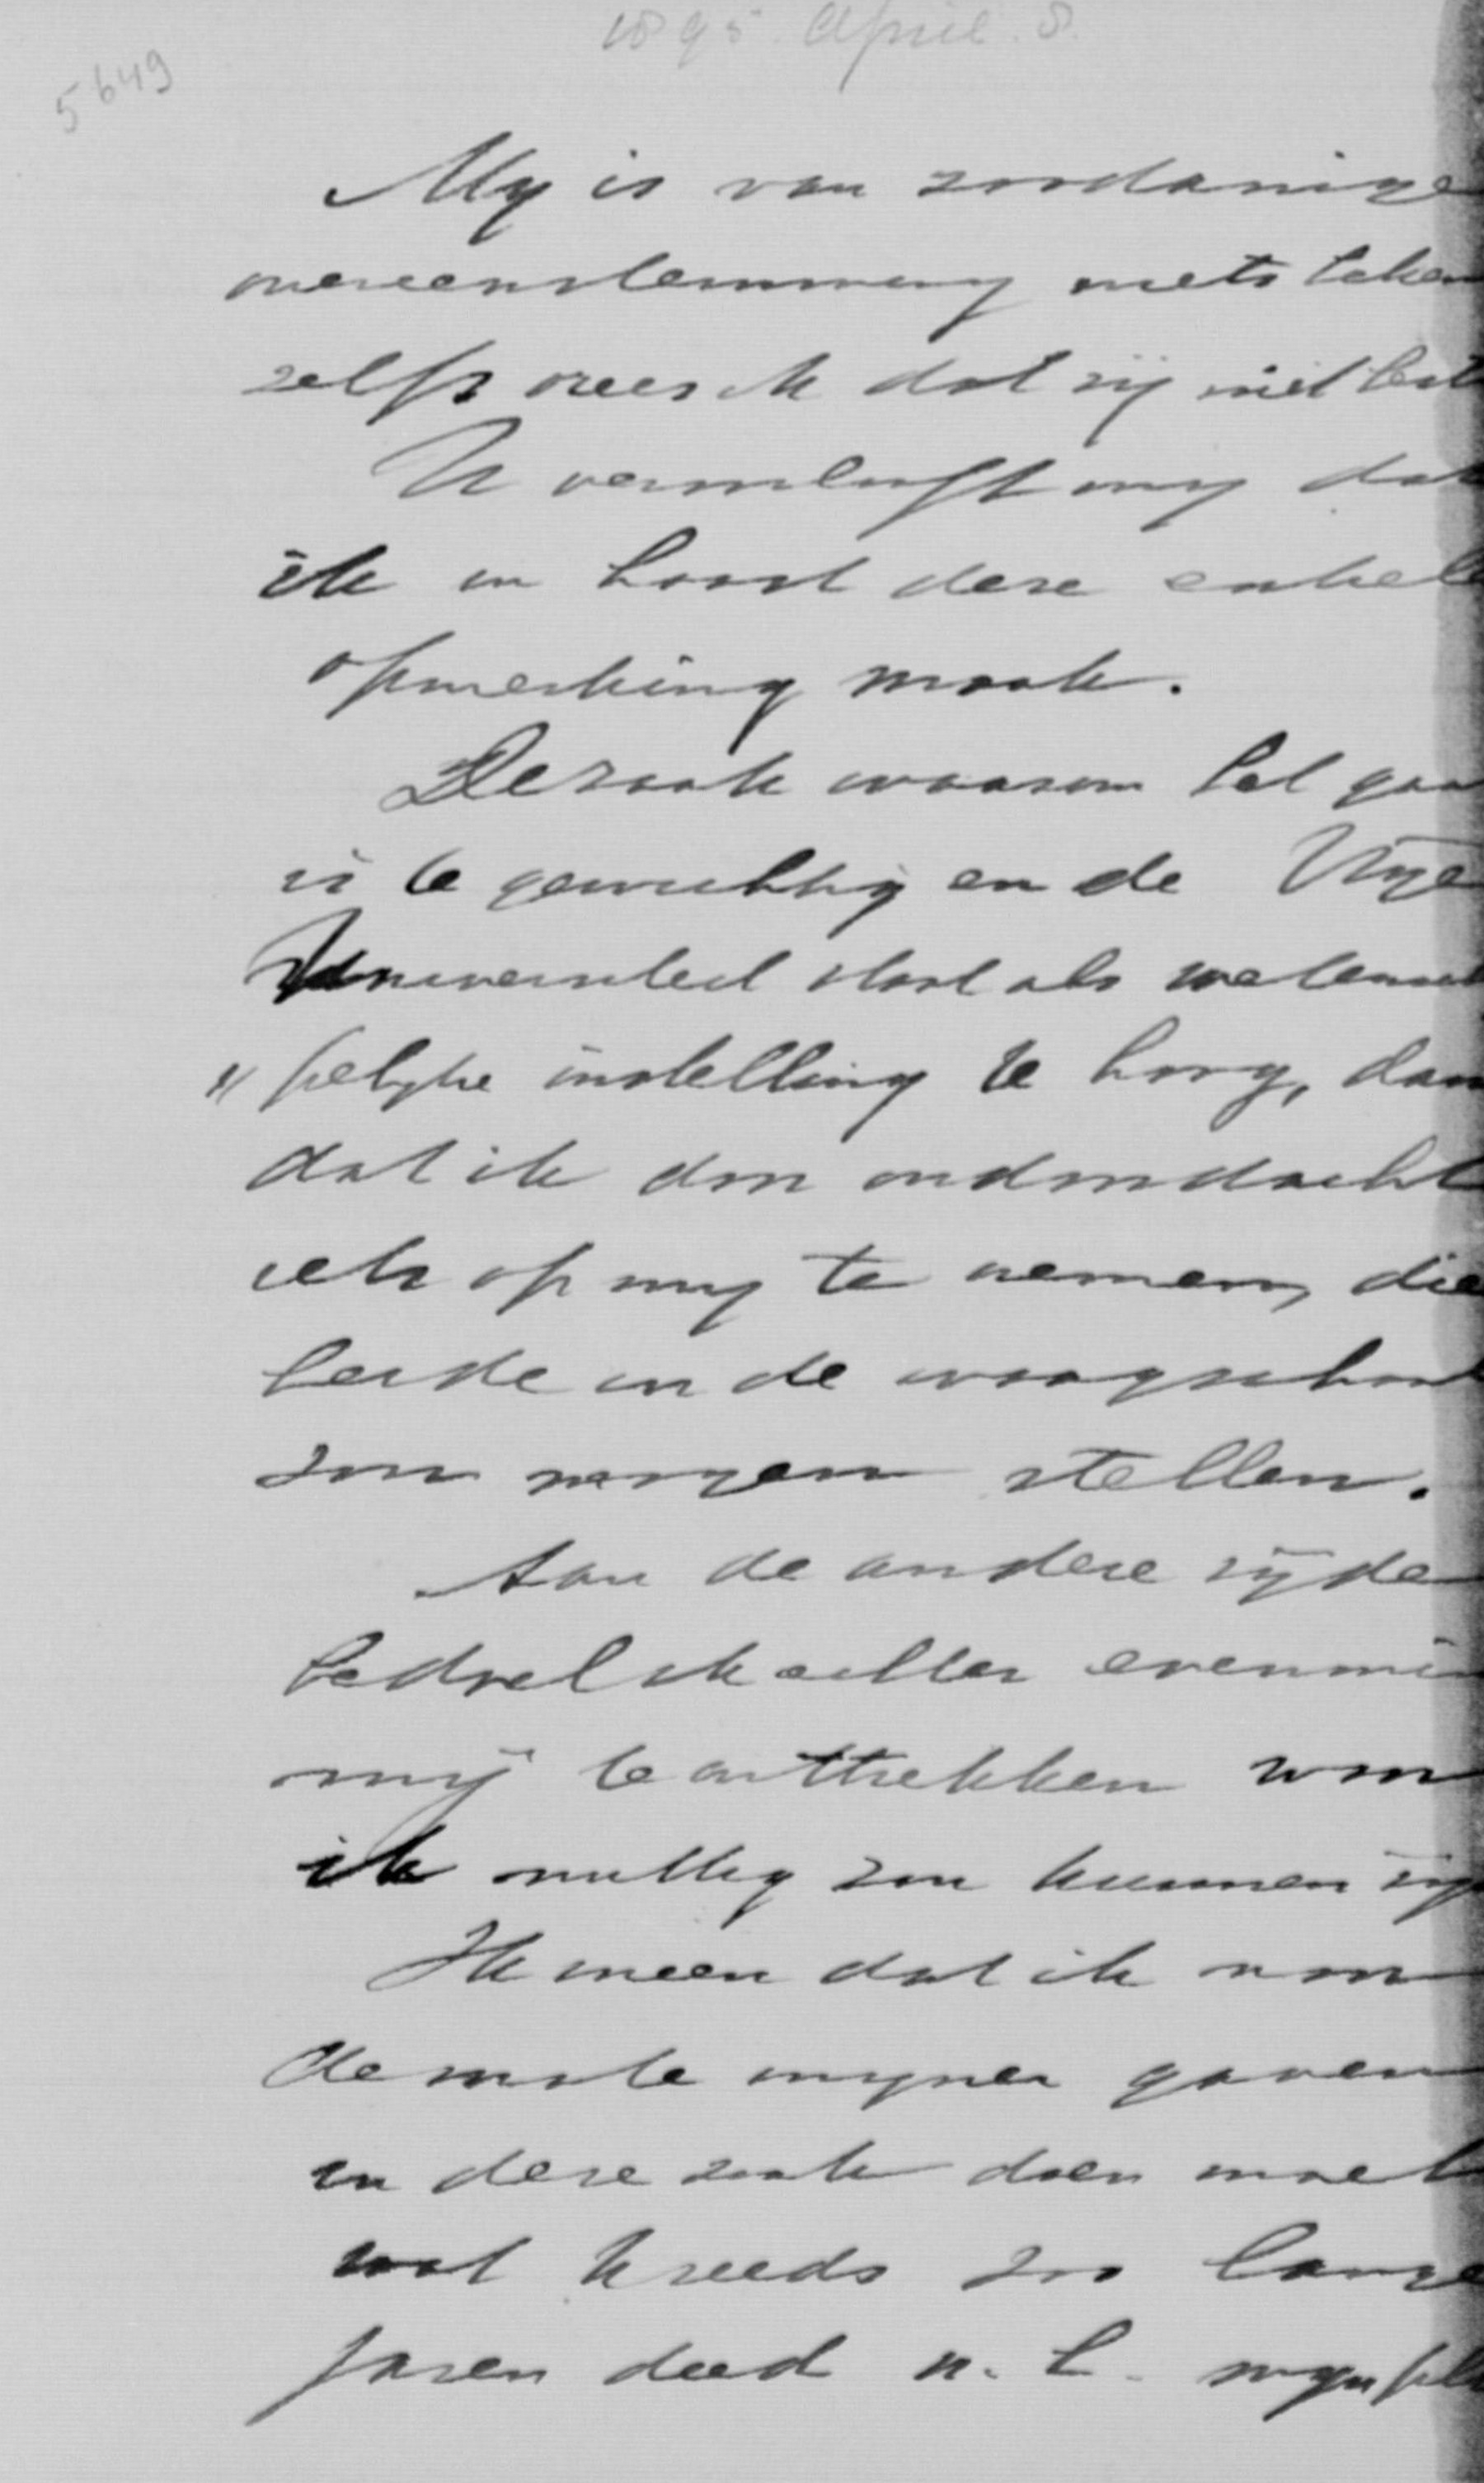 1895. April. 8.
5649
My is van zoodanige
overeenstemming niets beken
zelfs vrees ik dat zij niet best
U vergunt my dat
ik in haast deze enkele
opmerking maak.
De zaak waarom het gaa
is te gewichtig en de Vrije
Universiteit staat als wetensch
"pelyke instelling te hoog, dan
dat ik door ondoordacht
iets op my te nemen, die
beide in de waagschaal
zou mogen stellen.
Aan de andere zijde
bedoel ik echter evenmin
mij te onttrekken waar
ik nuttig zou kunnen zijn
Ik meen dat ik naar
de mate myner gaven
in deze zaak doen moet
wat ik reeds zoo lange
jaren deed n. l. myn pl